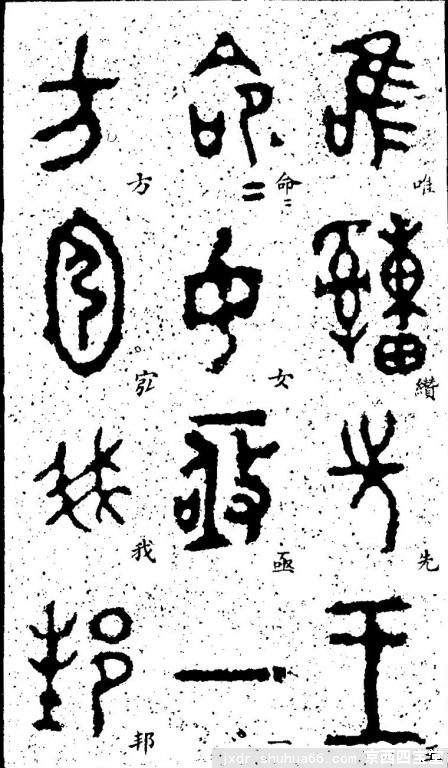 唯纘先王
命=女亟一
方宖我邦
jxdr.shuhua66.com